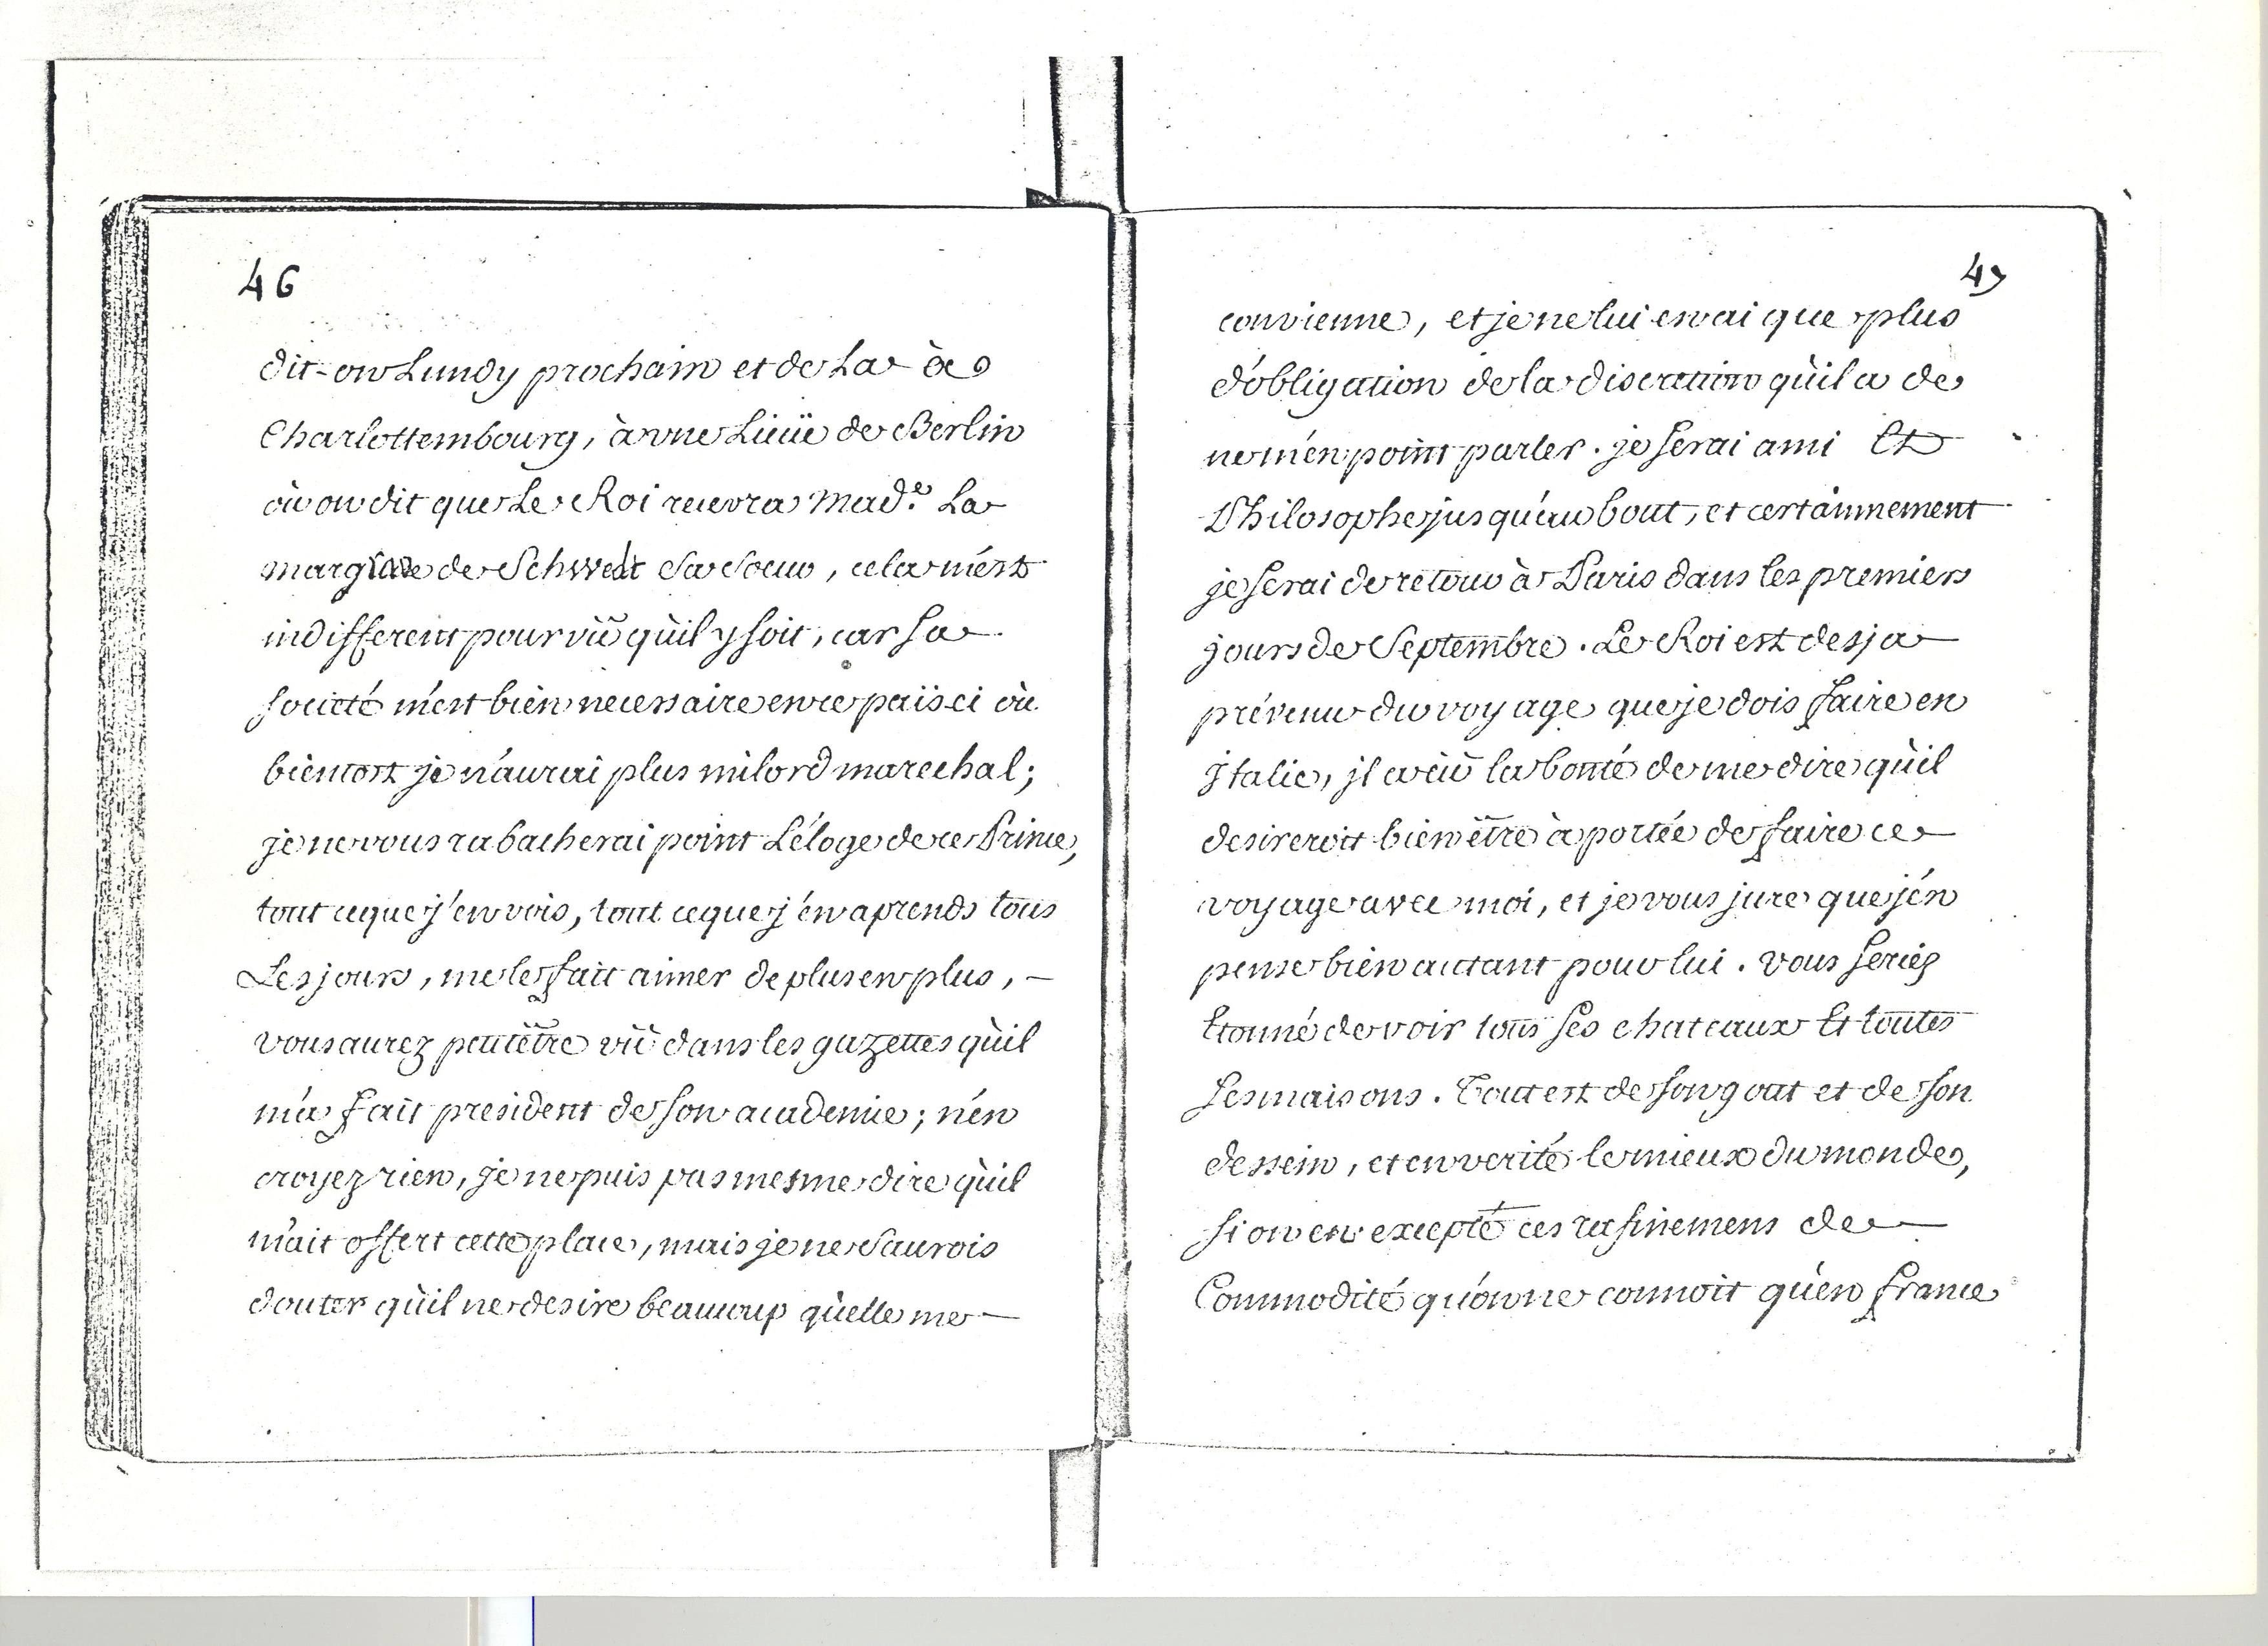 46
dit-on Lundy prochain et de La à
Charlottembourg, à une Lieüe de Berlin
où on dit que Le Roi recevra Mad.e La
margrave de Schwedt sa soeur, cela m'est
indifferent pourvû qu'il y soit, car sa
societé m'est bien necessaire en ce païs ci où
bientost je n'aurai plus milord marechal;
je ne vous rabacherai point L'éloge de ce Prince,
tout ce que j'en vois, tout ce que j'en aprends tous
Les jours, me le fait aimer de plus en plus, —
vous aurez peutêtre vû dans les gazettes qu'il
m'a fait president de son academie; n'en
croyez rien, je ne puis pas mesme dire qu'il
m'ait offert cette place, mais je ne saurois
douter qu'il ne desire beaucoup qu'elle me —
47
convienne, et je ne lui en ai que plus
d'obligation de la discretion qu'il a de
ne m'en point parler. je serai ami Et
Philosophe jusqu'au bout, et certainnement
je serai de retour à Paris dans les premiers
jours de Septembre. Le Roi est desja
prévenu du voyage que je dois faire en
Italie, il a eü la bonté de me dire qu'il
desireroit bien être à portée de faire ce
voyage avec moi, et je vous jure que j'en
pense bien autant pour lui. vous seriez
Etonné de voir tous ses chateaux Et toutes
ses maisons. Tout est de son gout et de son
dessein, et en verité le mieux du monde,
si on en excepte ces rafinemens de —
Commodité qu'on ne connoit qu'en france